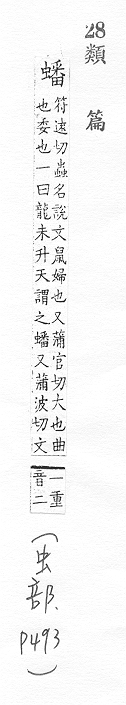 28 類篇
蟠
符遠切蟲名說文鼠婦也又蒲官切大也曲
也委也一曰龍未升天謂之蟠又蒲波切文
一重
音二
(虫部. P493)